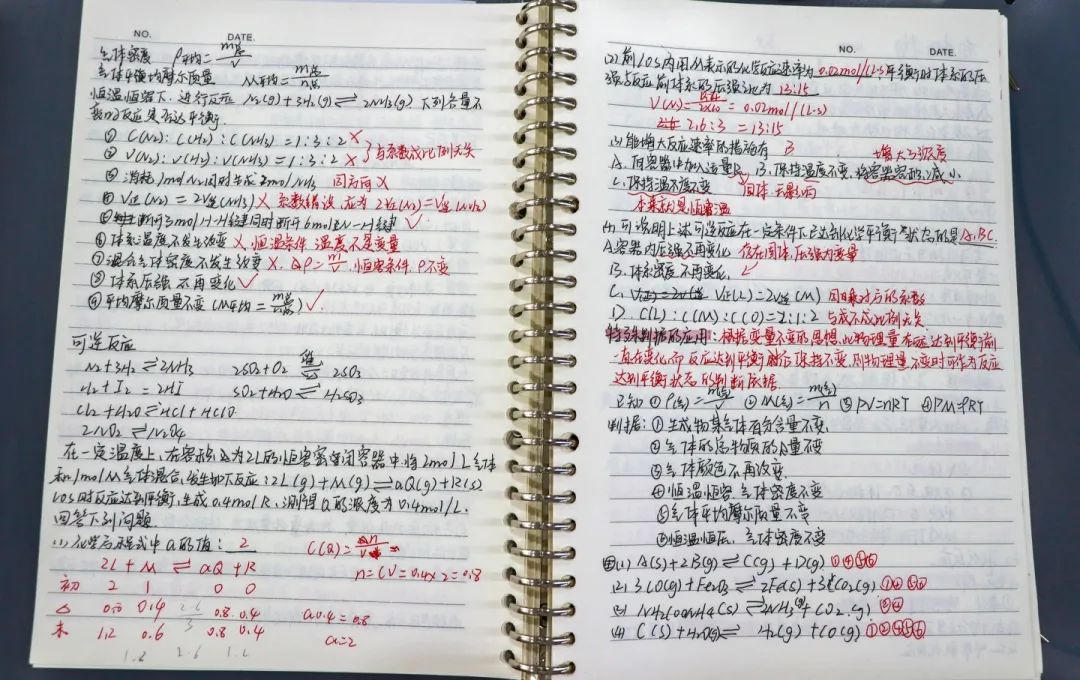 NO. DATE.
气体密度 ρ平均=m总/V
气体平均摩尔质量 M平均=m总/n总
恒温恒容下,进行反应 N₂(g)+3H₂(g)⇌2NH₃(g) 下列各量不
能说明反应是否达平衡.
① C(N₂):C(H₂):C(NH₃)=1:3:2 ×
② V(N₂):V(H₂):V(NH₃)=1:3:2 × } 与系数成比例无关
③ 消耗1molN₂同时生成2molNH₃ 同方向×
④ V正(N₂)=2V逆(NH₃) × 系数错误 应为2V正(N₂)=V逆(NH₃)
⑤ 断开3molH-H键同时断开6molN-H键 ✓
⑥ 体系温度不发生改变 × 恒温条件 温度不是变量
⑦ 混合气体密度不发生改变 ×. ρ=m/V, 恒容条件 ρ不变
⑧ 体系压强不再变化 ✓
⑨ 平均摩尔质量不变 (M平均=m总/n总) ✓.
可逆反应
N₂+3H₂⇌2NH₃ 2SO₂+O₂⇌2SO₃
H₂+I₂=2HI SO₂+H₂O⇌H₂SO₃
Cl₂+H₂O⇌HCl+HClO
2NO₂⇌N₂O₄
在一定温度上,在容积为2L的恒容密闭容器中,将2molL气体
和1molM气体混合,发生如下反应:2L(g)+M(g)⇌aQ(g)+R(s)
10s时反应达到平衡,生成0.4molR,测得Q的浓度为0.4mol/L.
回答下列问题.
(1) 化学方程式中a的值: 2 C(Q)=Δn/V
2L+M⇌aQ+R n=CV=0.4×2=0.8
初 2 1 0 0
△ 0.8 0.4 0.8 0.4 a0.4=0.8
末 1.2 0.6 0.8 0.4 a=2
NO. DATE.
(2) 前10s内用M表示的化学反应速率为0.02mol/(L·s),平衡时体系的压
强与反应前体系的压强之比为13:15
V(M)=0.4/2×10=0.02mol/(L·s)
2.6:3=13:15
(3) 能增大反应速率的措施有 B 增大了浓度
A. 向容器中加入适量R B. 保持温度不变,将容器容积减小
C. 保持温度不变 固体 无影响
本来就是恒容温
(4) 可说明上述可逆反应在一定条件下已达到化学平衡状态的是A.BC.
A.容器内压强不再变化 存在固体,压强为变量
B.体系密度不再变化. ✓
C. V正(L)=2V逆(M) 因乘对应的系数
D. C(L):C(M):C(Q)=2:1:2 与成不成比例无关.
特殊判据的应用:根据变量不变的思想,此物理量在达到平衡前
一直在变化而反应达到平衡后保持不变,则物理量不变时可作为反应
达到平衡状态的判断依据.
已知 ①ρ(g)=m(g)/V ②M(g)=m(g)/n ③PV=nRT ④PM=ρRT
判据:①生成物某气体百分含量不变.
②气体的总物质的量不变
③气体颜色不再改变
④恒温恒容 气体密度不变
⑤气体平均摩尔质量不变
⑥恒温恒压, 气体密度不变
(1) A(s)+2B(g)⇌C(g)+D(g)①④⑤⑥
(2) 3CO(g)+Fe₂O₃⇌2Fe(s)+3CO₂(g)
(3) NH₂COONH₄(s)⇌2NH₃(g)+CO₂(g)②④
(4) C(s)+H₂O(g)⇌H₂(g)+CO(g)①②④⑤⑥